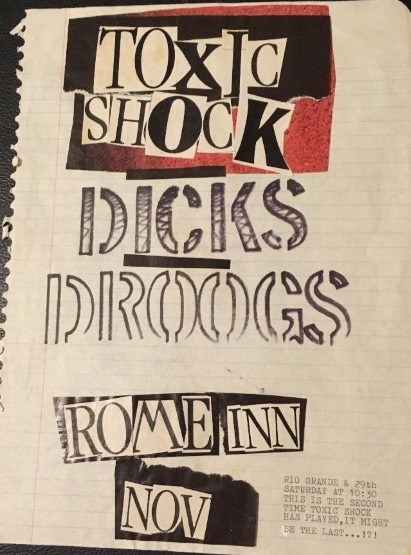 TOXIC
SHOCK
DICKS
DROOGS
ROME INN
NOV
RIO GRANDE & 29th
SATURDAY AT 10:30
THIS IS THE SECOND
TIME TOXIC SHOCK
HAS PLAYED,IT MIGHT
BE THE LAST...!?!